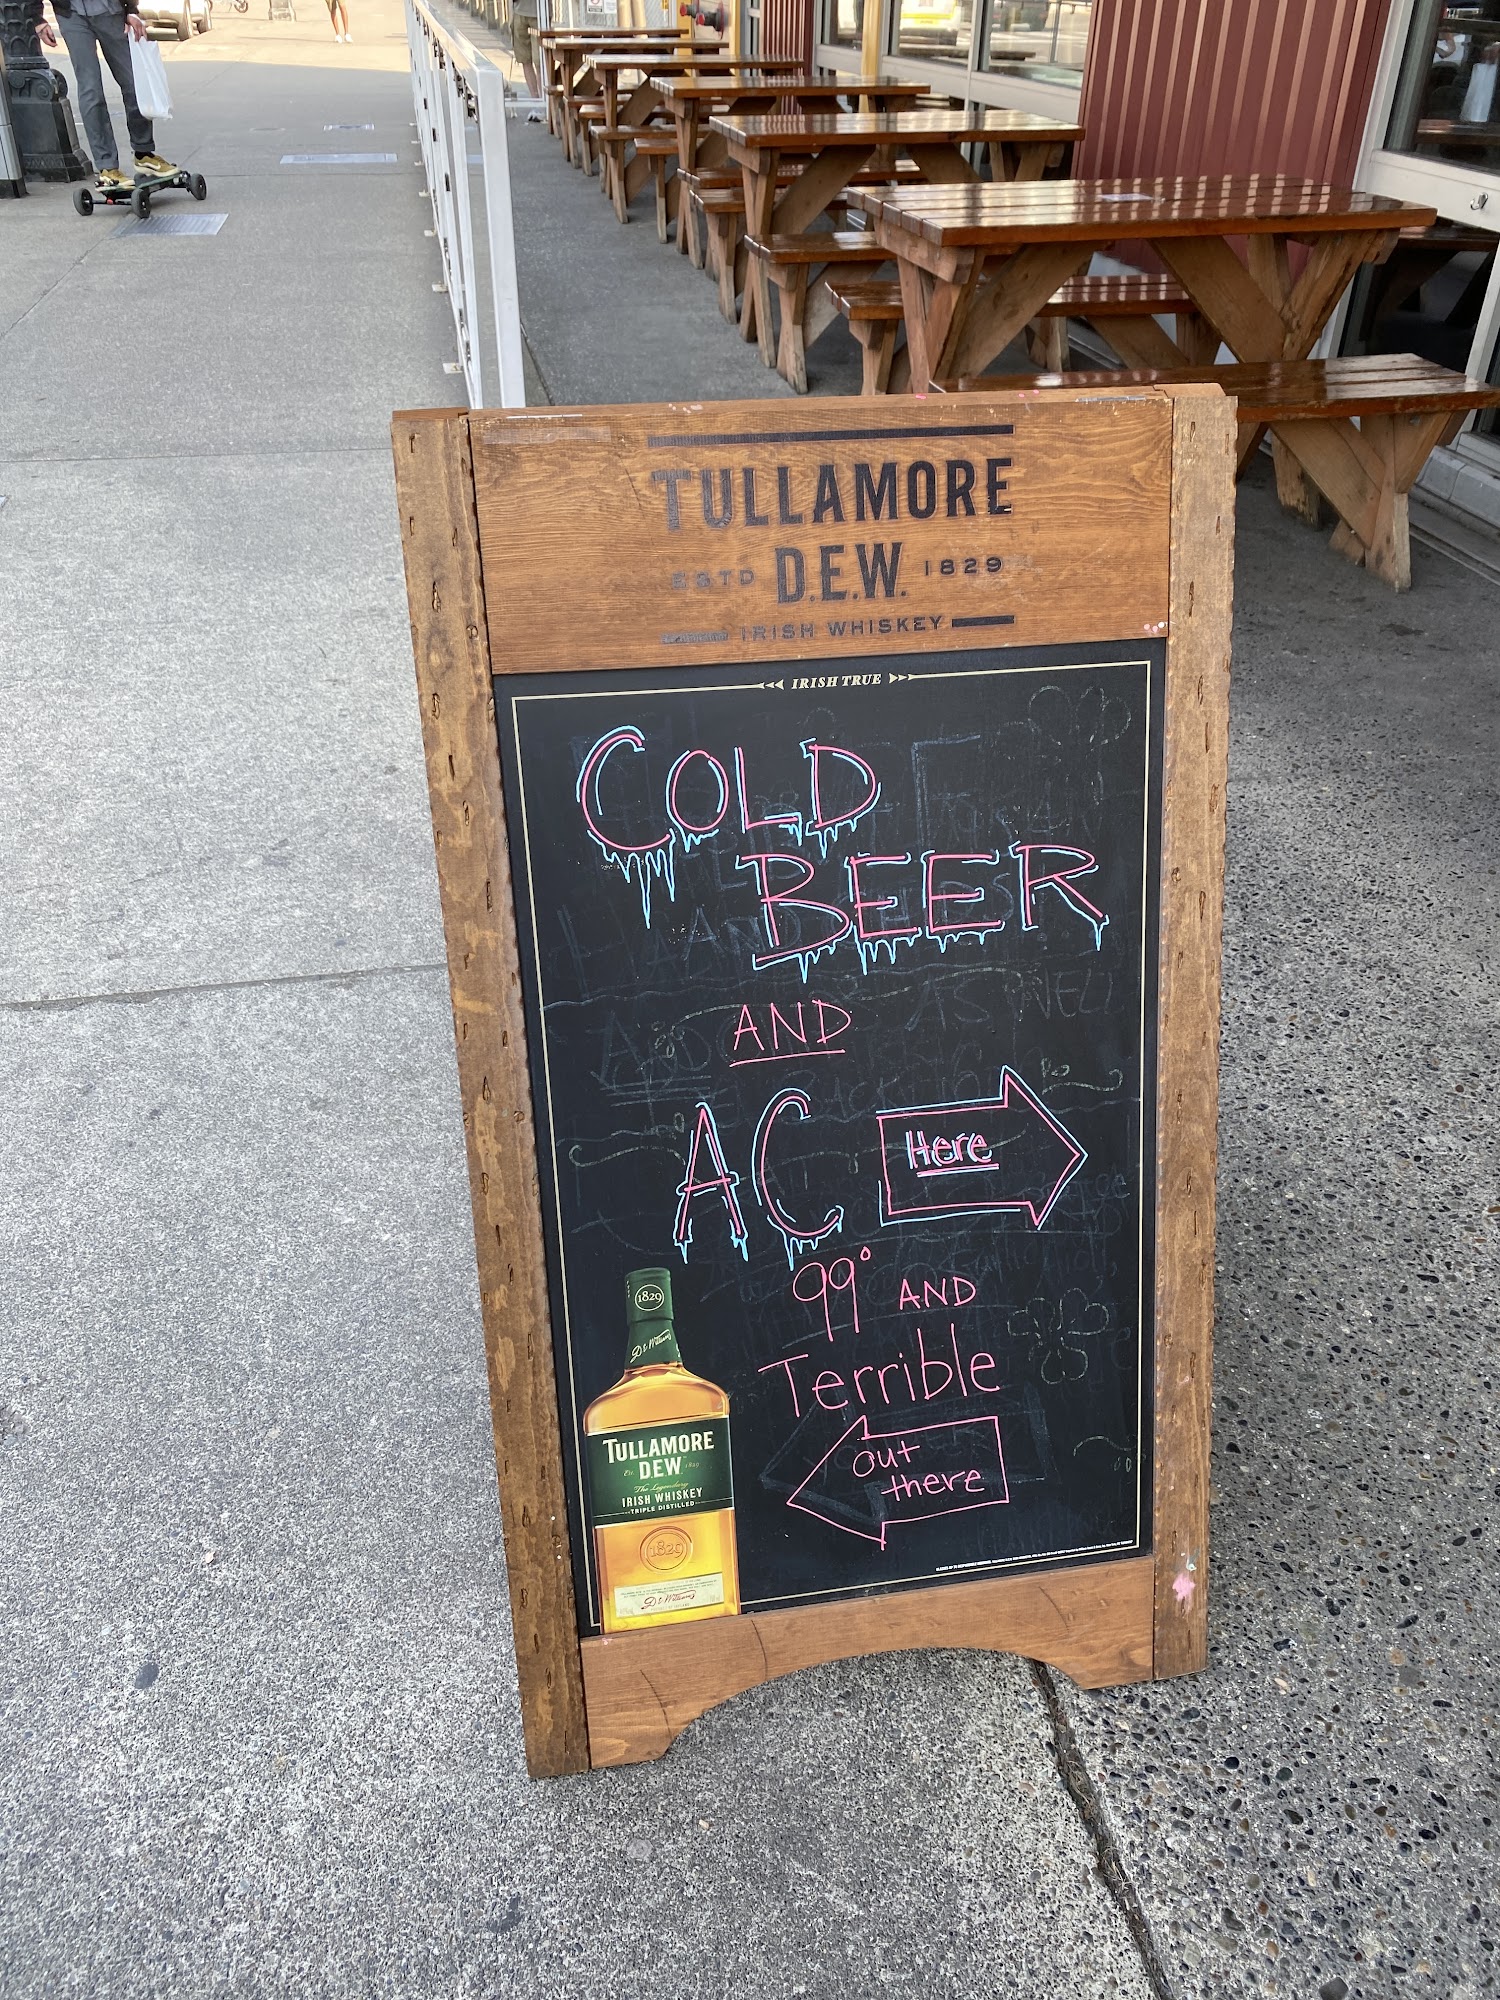 TULLAMORE
ESTD D.E.W. 1829
IRISH WHISKEY
IRISH TRUE
COLD
BEER
AND
AC Here
99° AND
Terrible
out
there
1829
TULLAMORE
D.E.W.
The Legendary
IRISH WHISKEY
TRIPLE DISTILLED
1829